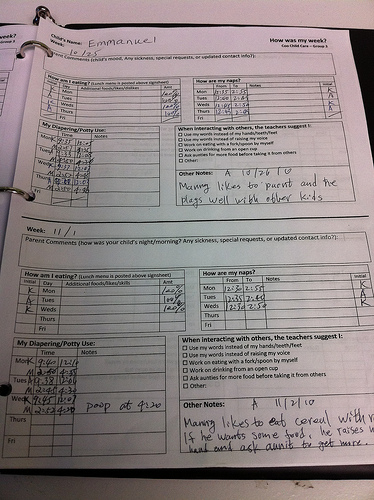 Child's Name: Emmanuel
How was my week?
Week: 10/25
Cox Child Care – Group 3
Parent Comments (child's mood, any sickness, special requests, or updated contact info?):
How am I eating? (Lunch menu is posted above signsheet)
How are my naps?
Day Additional foods/likes/dislikes Amt
From To Notes Initial
Mon
Tues
Weds
Thurs
Fri
Mon
Tues
Weds
Thurs
Fri
My Diapering/Potty Use:
Time Notes
Mon
Tues
Weds
Thurs
Fri
When interacting with others, the teachers suggest I:
Use my words instead of my hands/teeth/feet
Use my words instead of raising my voice
Work on eating with a fork/spoon by myself
Work on drinking from an open cup
Ask aunties for more food before taking it from others
Other:
Other Notes: A 10/26/10
Manny likes to paint and he
plays well with other kids
Week: 11/1
Parent Comments (how was your child's night/morning? Any sickness, special requests, or updated contact info?):
How am I eating? (Lunch menu is posted above signsheet)
How are my naps?
Initial Day Additional foods/likes/dislikes Amt
From To Notes Initial
K Mon
A Tues
K Weds
Thurs
Fri
Mon 12:30 2:55 K
Tues 12:35 2:40 A
Weds 12:30 2:50 K
Thurs
Fri
My Diapering/Potty Use:
Time Notes
Mon K 9:40
Tues A 9:38
Weds K 9:45
poop at 4:20
Thurs
Fri
When interacting with others, the teachers suggest I:
Use my words instead of my hands/teeth/feet
Use my words instead of raising my voice
Work on eating with a fork/spoon by myself
Work on drinking from an open cup
Ask aunties for more food before taking it from others
Other:
Other Notes: A 11/2/10
Manny likes to eat cereal with
If he wants some food, he raises
hand and ask aunti to get more.